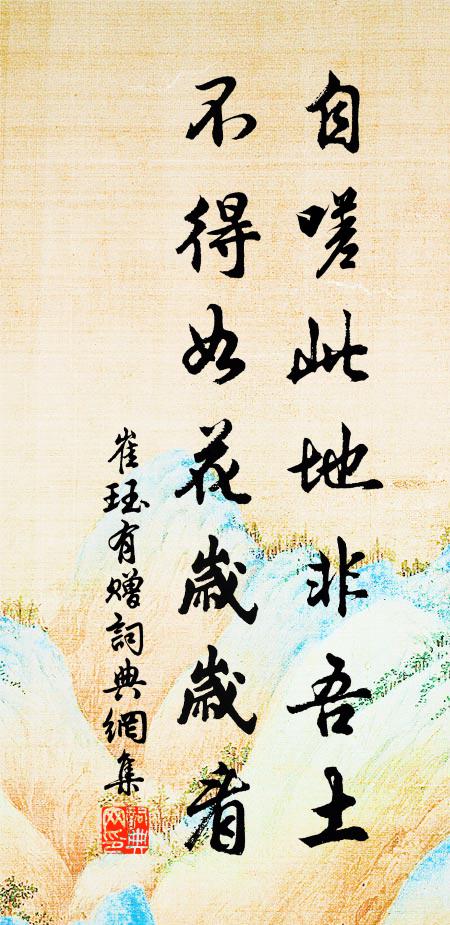 自嗟此地非吾土
不得如花歲歲看
崔珏有贈詞典網集
詞典網印